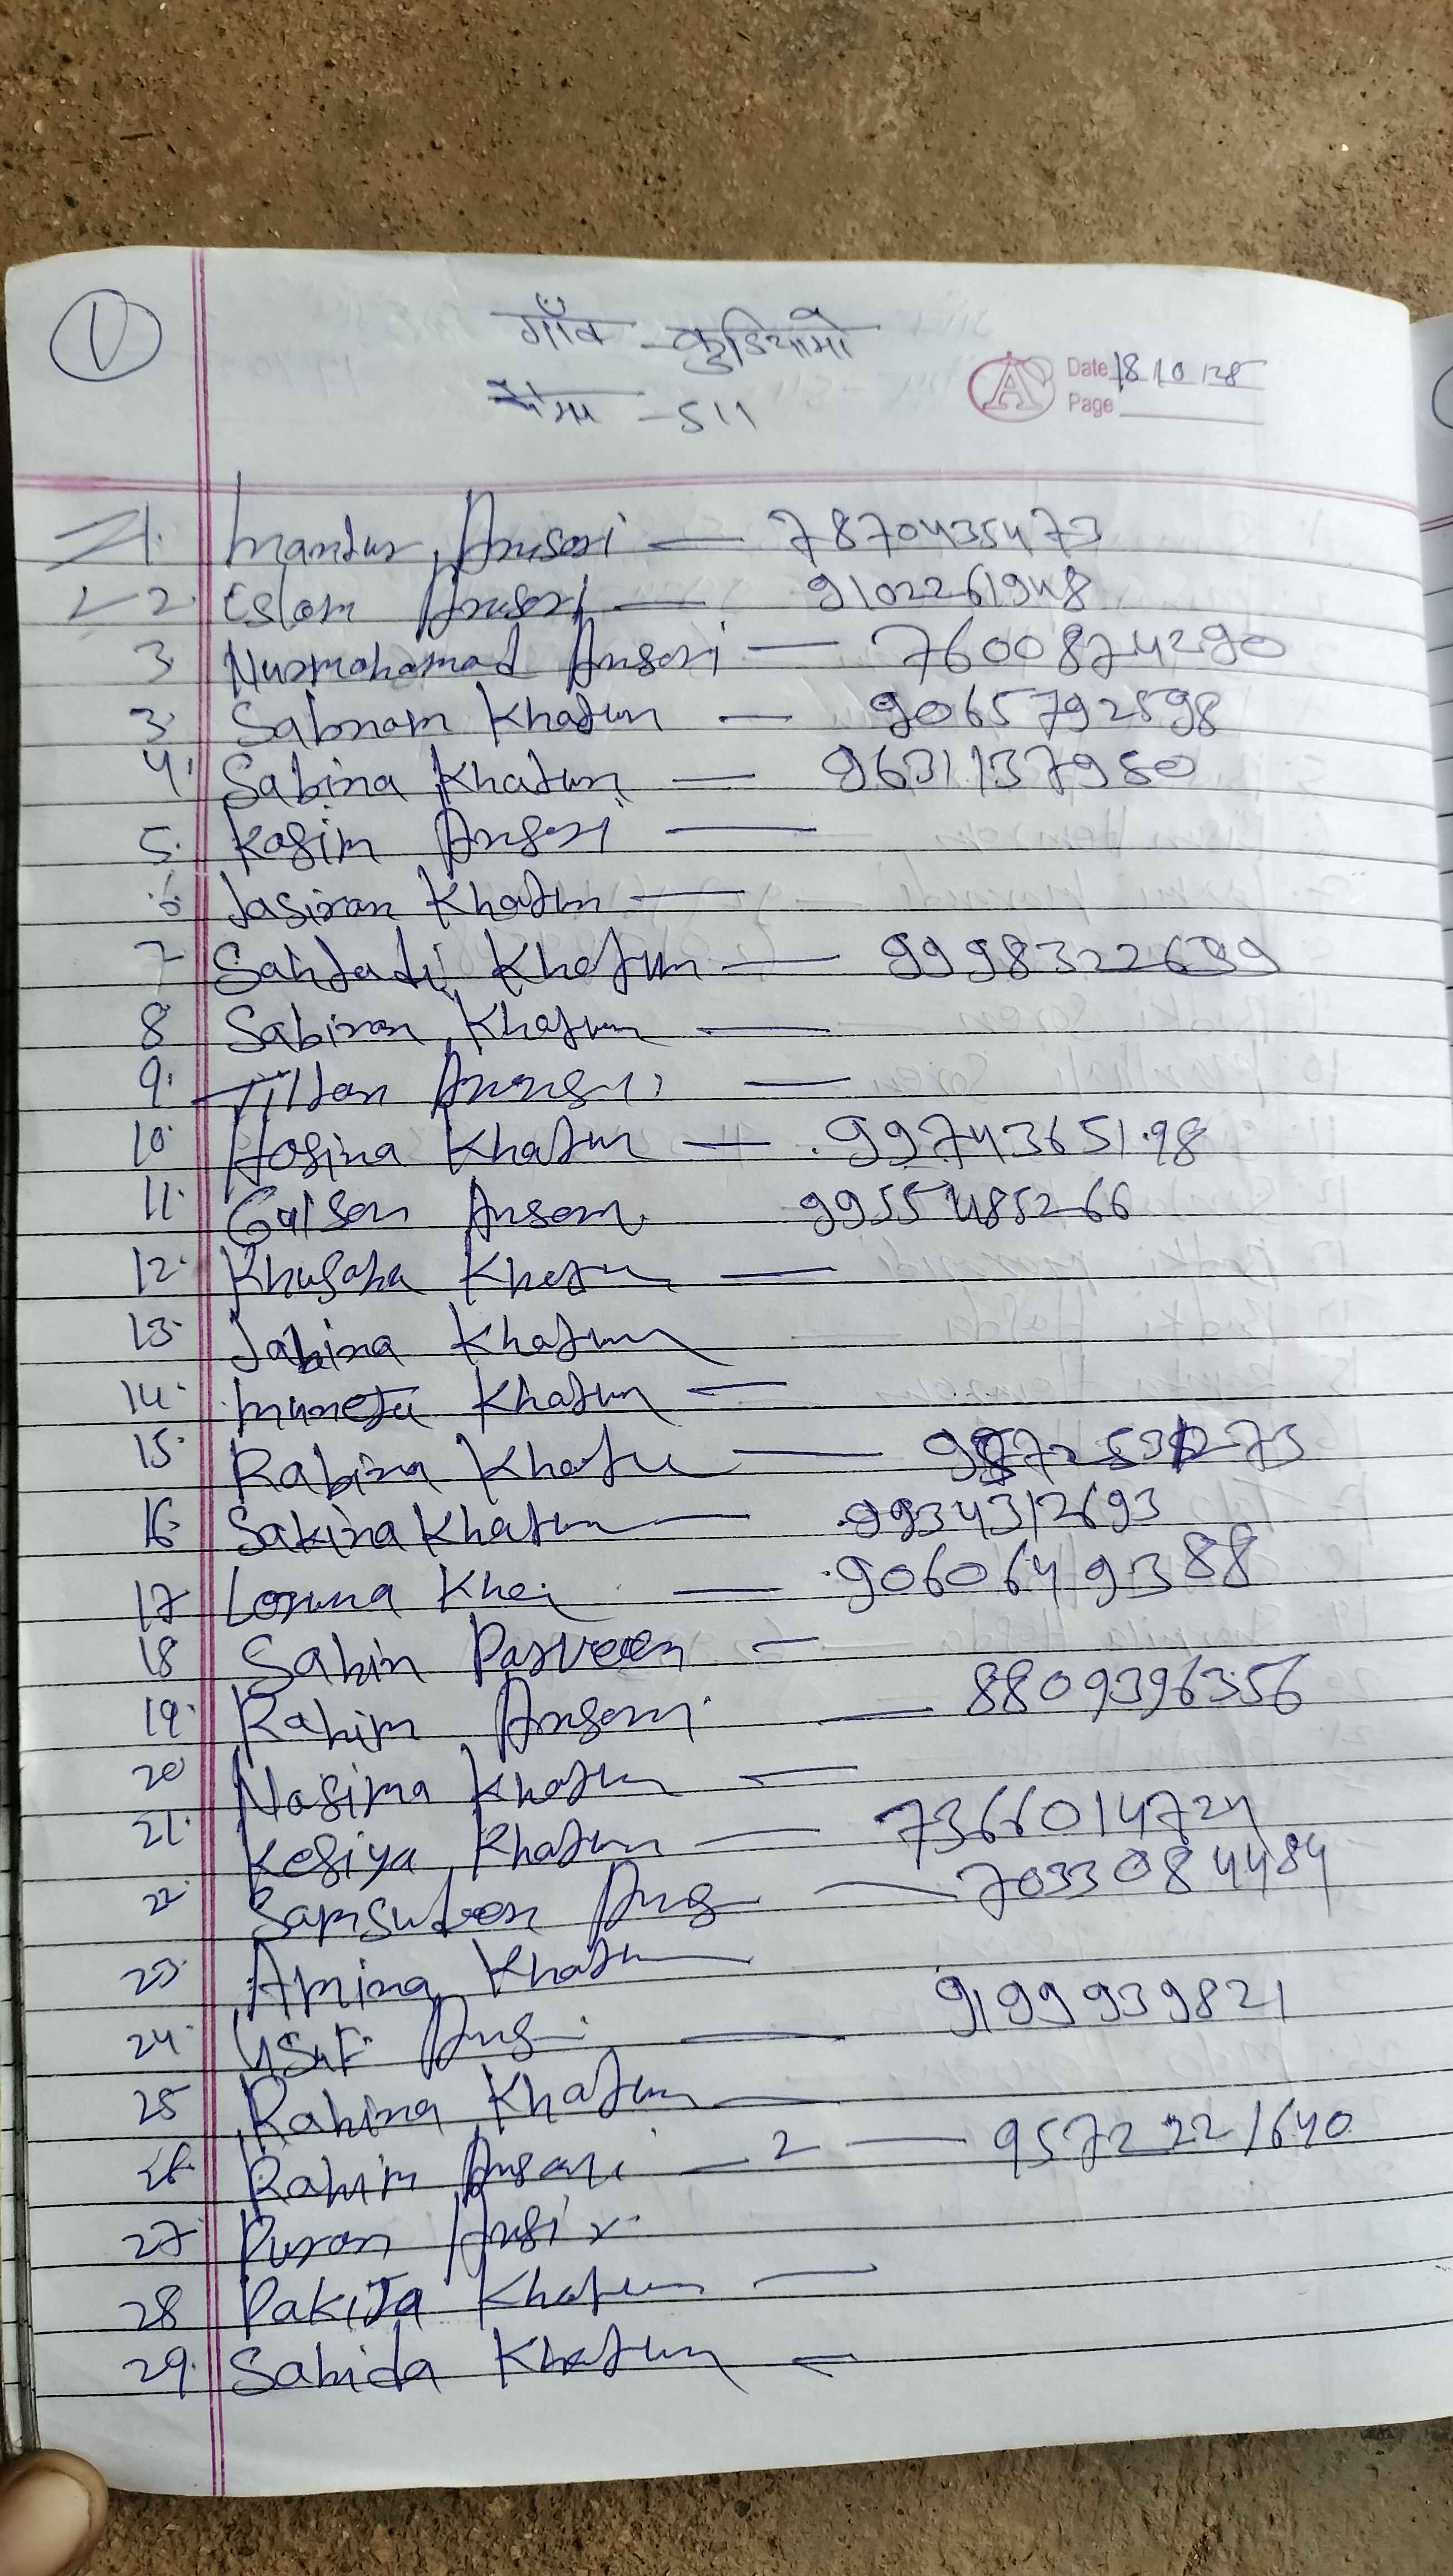 1
गाँव - कुडियामो
- 511
Date 18/10/25
Page
1. Mantur Ansori — 7870435473
2. Eslam Ansori — 9102261948
3 Nurmohamad Ansari — 76008744290
3. Sabnam Khatun — 9065792598
4. Sabina Khatun — 9631137980
5. Kasim Ansari —
6 Jasiran Khatun —
7 Sahjadi Khatun — 9998322639
8 Sabiran Khatun —
9.
10. Hosina Khatun — 9974365198
11. Gulsan Ansari 9955485266
12. Khatun —
13. Jabina Khatun
14. Khatun —
15. Rabina Khatu —
16. Sakina Khatun — 9934312693
17 — 9060649388
18 Sahin Parveen —
19. Rahim Ansari — 8809396356
20 Nasima Khatun —
21. Kesiya Khatun — 7366014724
22. — 7033084484
23. Amina Khatun
24. Usuf — 9199939821
25 Rahina Khatun —
26. Rahim Ansari — 2 — 9572221640
27. Puran
28 Pakija Khatun —
29. Sahida Khatun —